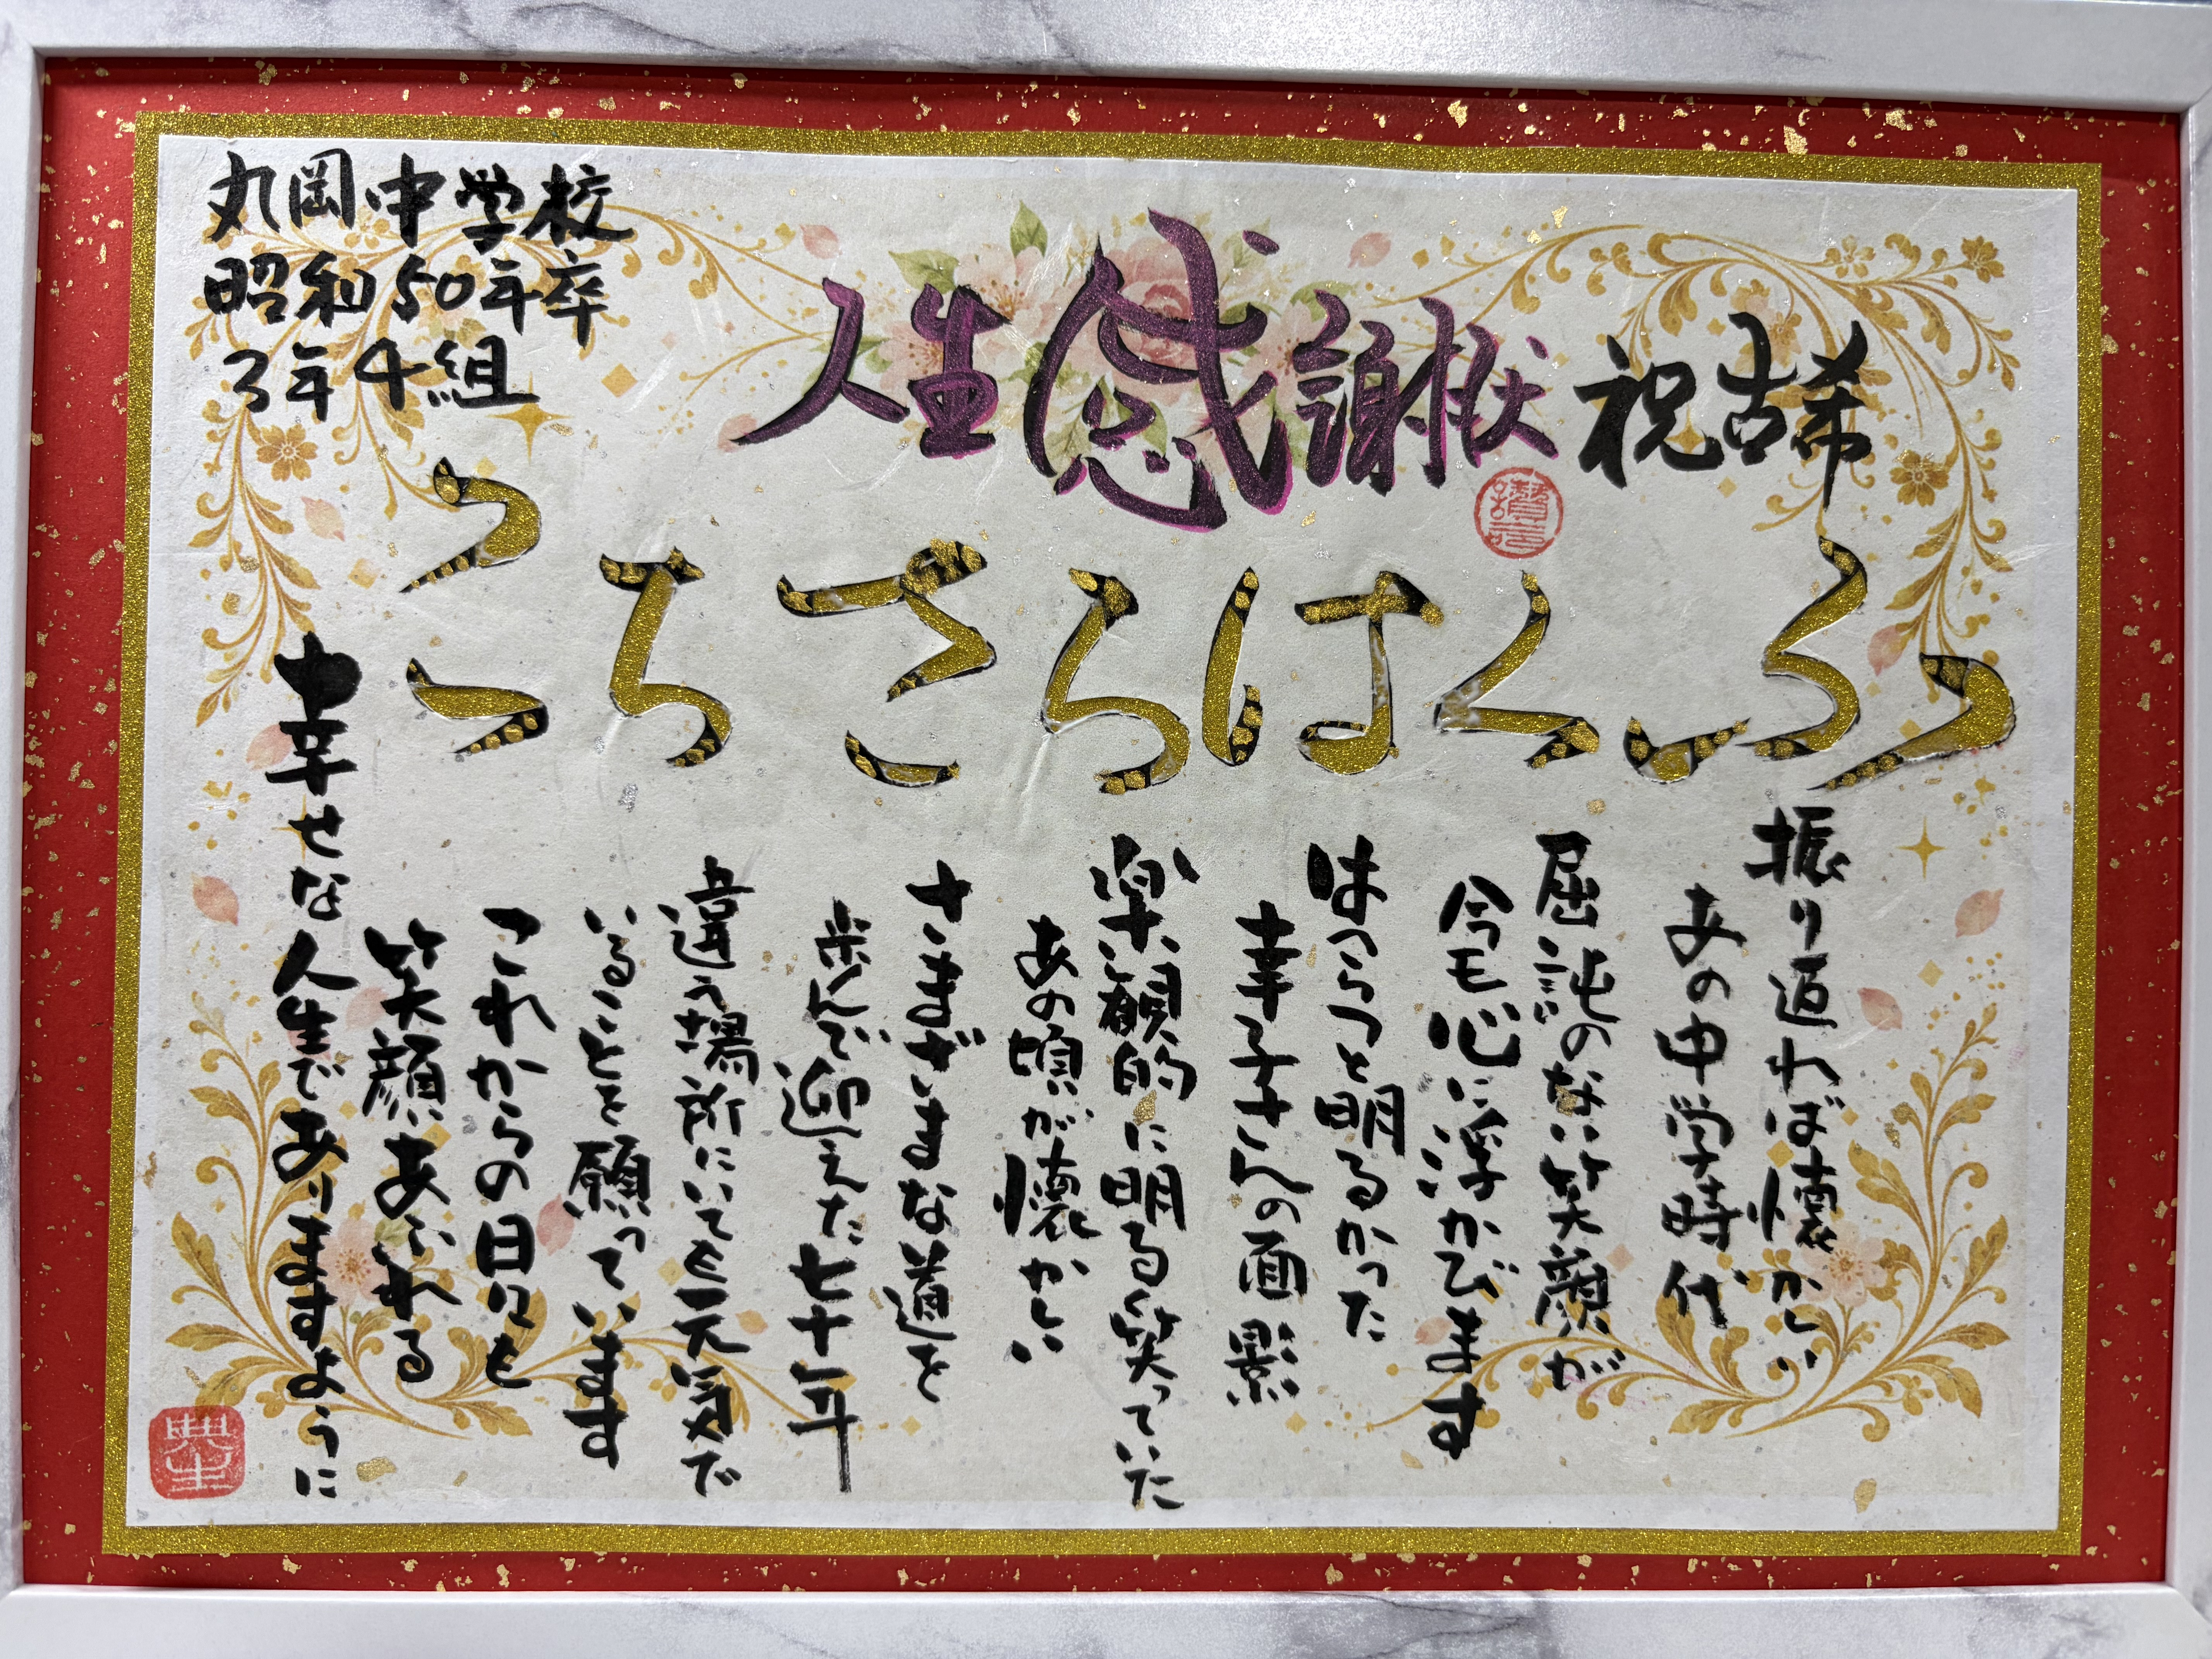 丸岡中学校
昭和50年卒
3年4組
人生感謝状 祝古希
ふくはらさちこ
振り返れば懐かしい
あの中学時代
屈託のない笑顔が
今も心に浮かびます
はつらつと明るかった
幸子さんの面影
楽観的に明るく笑っていた
あの頃が懐かしい
さまざまな道を
歩んで迎えた七十年
違う場所にいても元気で
いることを願っています
これからの日々も
笑顔あふれる
幸せな人生でありますように